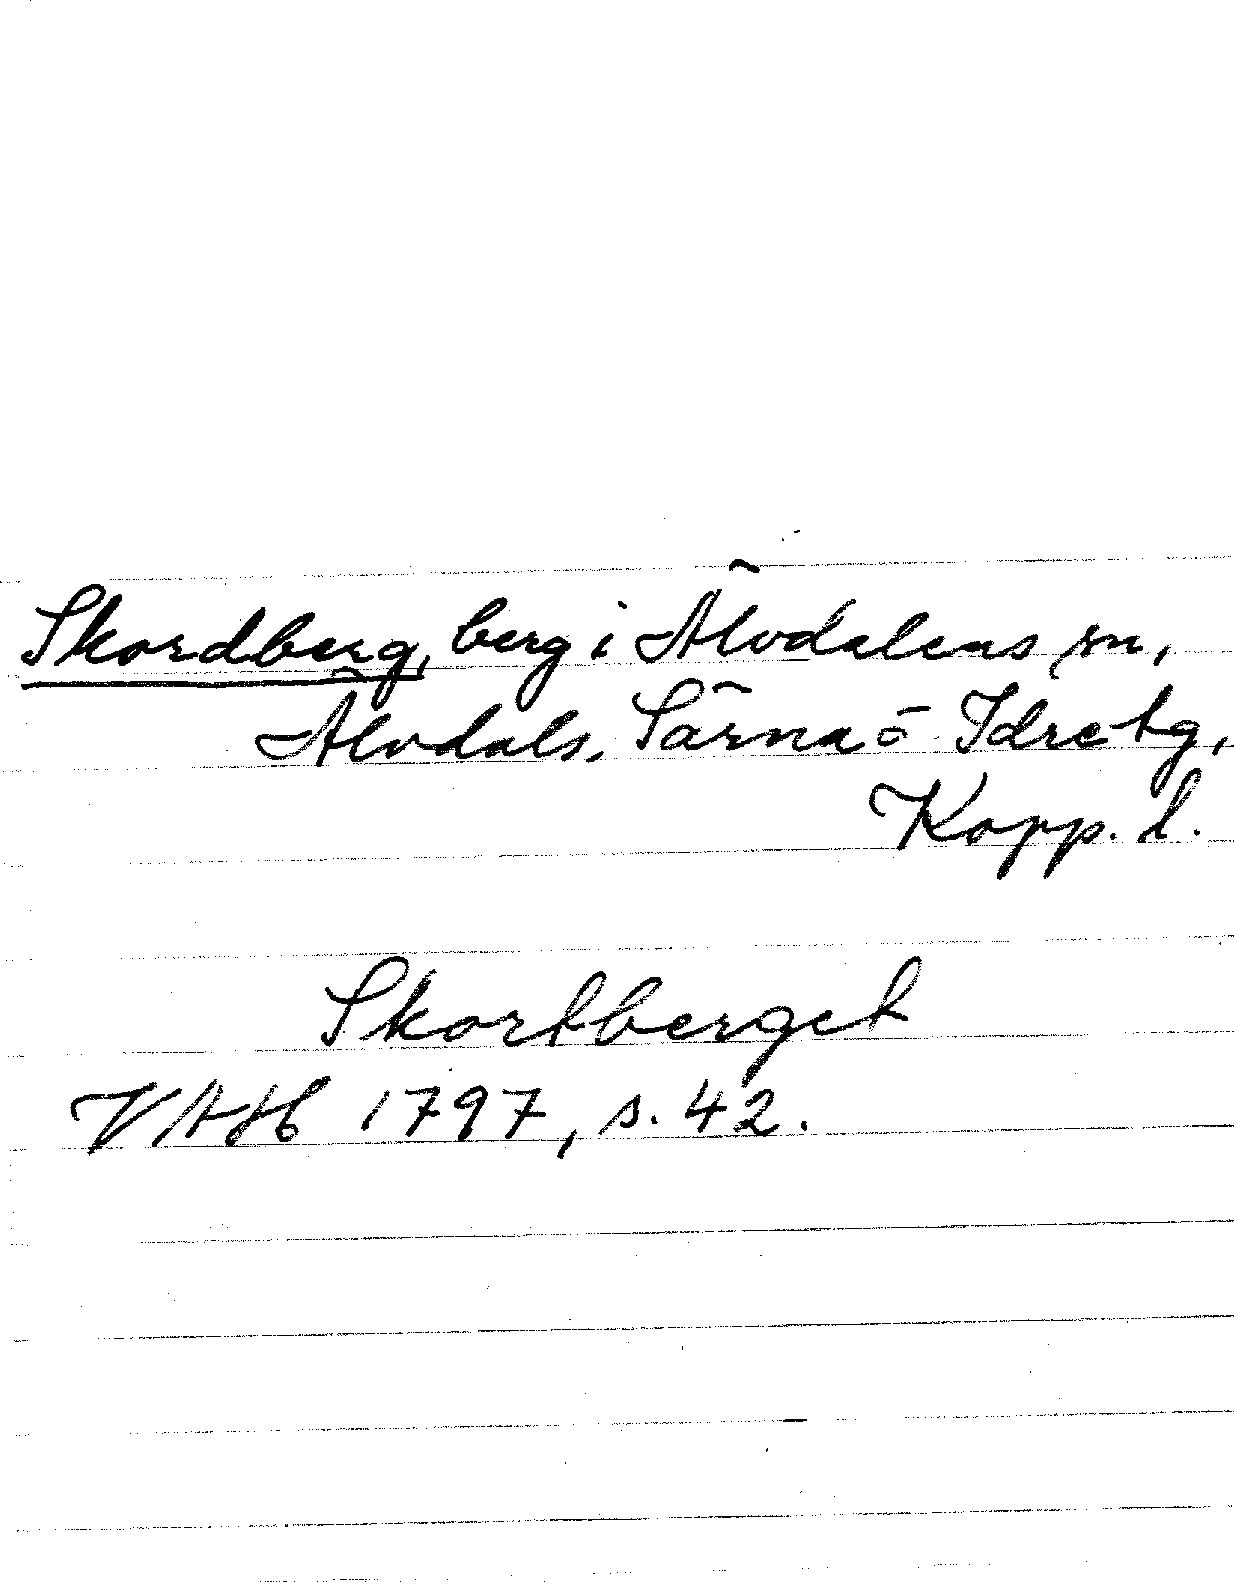 Skordberg, berg i Älvdalens sn,
Älvdals, Särna ō Idre tg,
Kopp. l.
Skortberget
VAH 1797, s. 42.